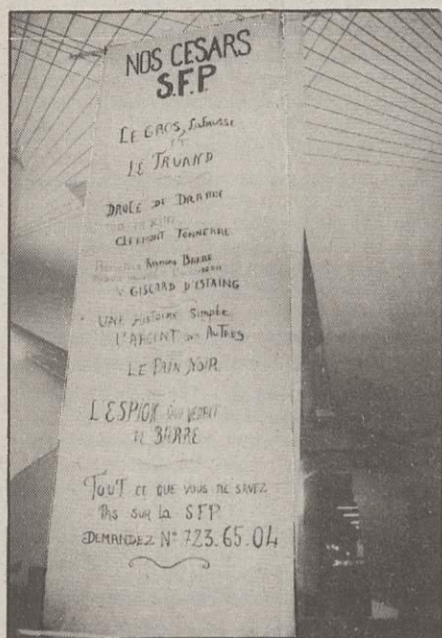 NOS CESARS
S.F.P
LE GROS,
ET
LE TRUAND
DROLE DE DRAME
CLERMONT TONNERRE
RAYMOND BARRE
V GISCARD D'ESTAING
UNE HISTOIRE SIMPLE
L'ARGENT DES AUTRES
LE PAIN NOIR
L'ESPION QUI VENAIT
DE BARRE
TOUT CE QUE VOUS NE SAVEZ
PAS SUR LA SFP
DEMANDEZ N° 723.65.04